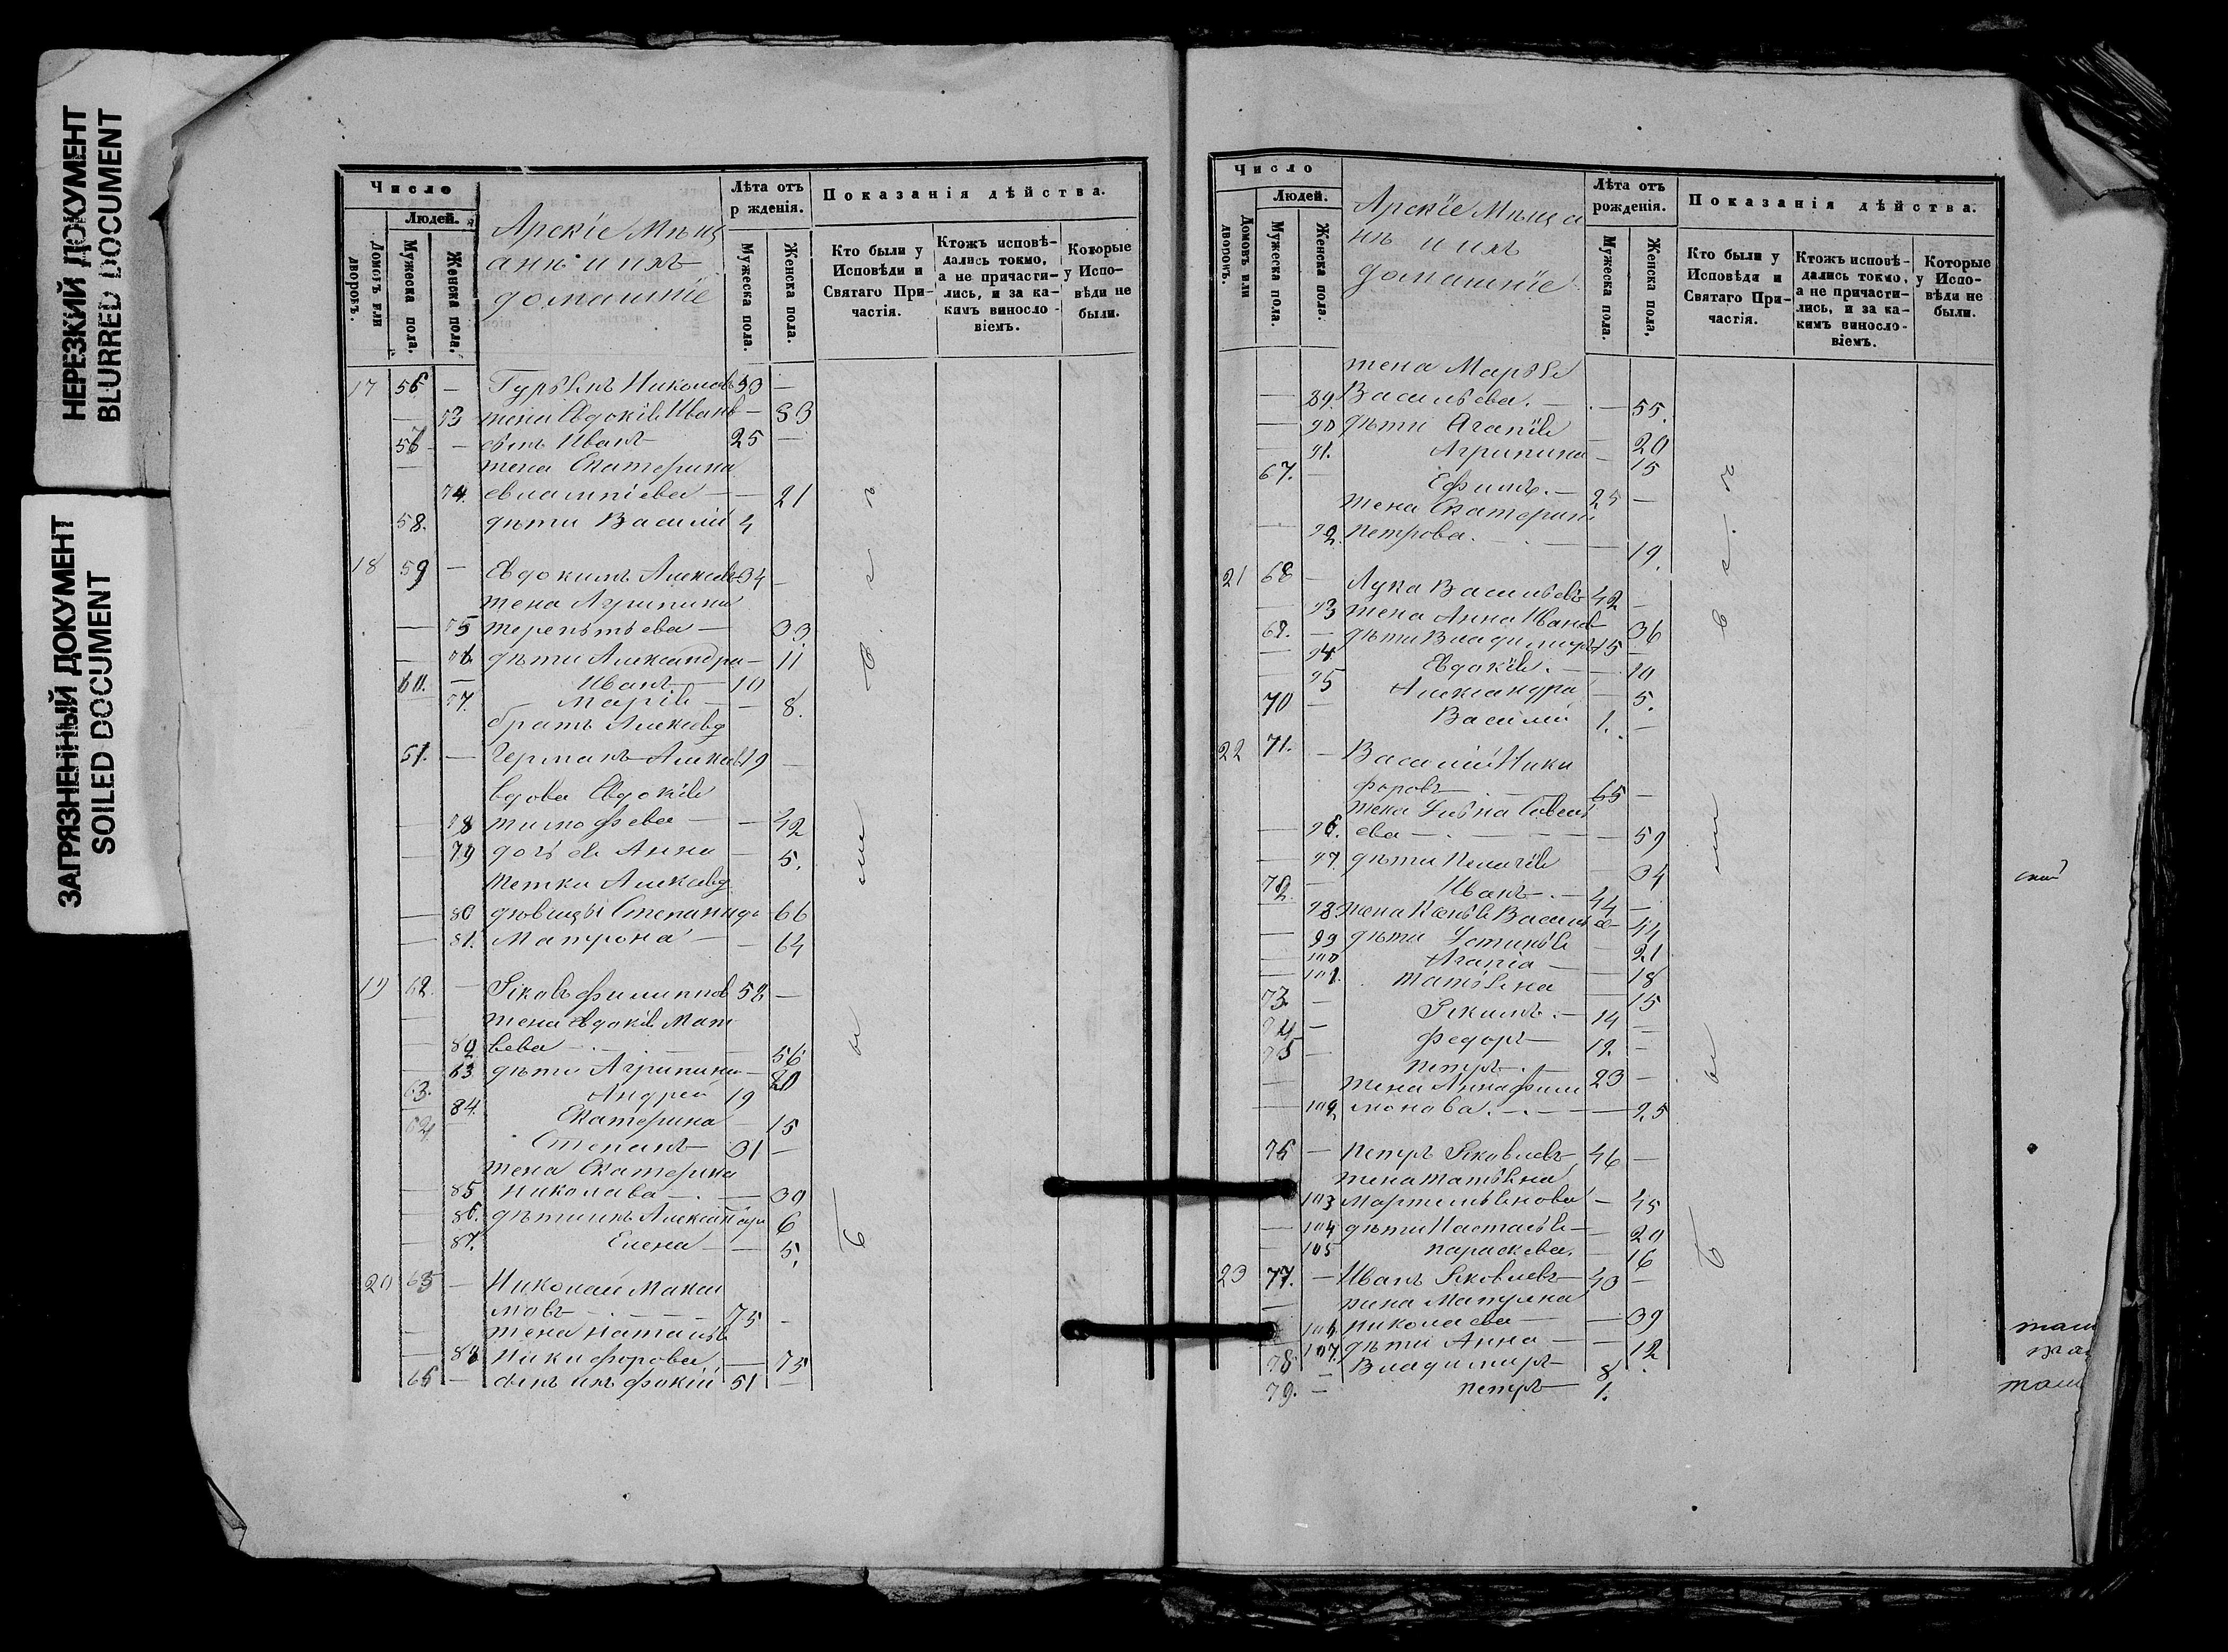 НЕРЕЗКИЙ ДОКУМЕНТ
BLURRED DOCUMENT
ЗАГРЯЗНЕННЫЙ ДОКУМЕНТ
SOILED DOCUMENT
Число
Людей.
Домовъ или дворовъ.
Мужеска пола.
Женска пола.
Арскіе Мѣщ
анѣ и ихъ
домашніе
Лѣта отъ
р жденія.
Мужеска пола.
Женска пола.
Показанія дѣйства.
Кто были у
Исповѣди и
Святаго При-
частія.
Ктожъ исповѣ-
дались токмо,
а не причасти-
лись, и за ка-
кимъ винослo-
віемъ.
Которые
у Испо-
вѣди не
были.
17 56 — Николаевъ —
— жена Евдокія Иванв — 33
— сынъ Иванъ 25 —
жена Екатерина
74. евлампіева — — 21
58. дѣти Василій 4
18 59 — Евдокимъ Алексѣев 34 —
жена Агрипина
75 терентьева — 33
дѣти Александра — 11
60. — Иванъ — 10
77. Марія — — 8.
братъ Алексѣвъ
61. — Германъ Алексѣв 19 —
вдова Евдокія
78 тимофѣева — — 42
79 дочь ея Анна — 5.
тетки Алексѣвъ
80 дѣвицы Степанида 66
81. Матрона — — 64
19 62. — Яковъ филиппов 52 —
жена евдокія Мат
82 вева — — 56
83 дѣти Агрипина — 20
63. Андрей 19
84. Екатерина — 15
64 Степанъ — 31 —
жена Екатерина
85 Николаева — — 30
86. дѣти ихъ Александра 6
87. Елена — — 5.
20 65 — Николай Макси
мовъ — — 75 —
жена наталья
88 Никифорова — 75
66 — сынъ ихъ фокій 51 —
были
Число
Людей.
Домовъ или дворовъ.
Мужеска пола.
Женска пола.
Арскіе Мѣща
нѣ и ихъ
домашніе
Лѣта отъ
рожденія.
Мужеска пола.
Женска пола.
Показанія дѣйства.
Кто были у
Исповѣди и
Святаго При-
частія.
Ктожъ исповѣ-
дались токмо,
а не причасти-
лись, и за ка-
кимъ винослo-
віемъ.
Которые
у Испо-
вѣди не
были.
жена Марья
89. Васильева. — 55.
90 дѣти Агапія — 20
91. Агрипина — 15
67. — Ефимъ. — 25 —
жена Екатерина
92. петрова. — — 19.
21 68 — Лука Васильевъ 42 —
93 жена Анна Иванв 36
69. — дѣти Владимиръ 15 —
94 Евдокія. — 10
95 Александра — 5.
70 — Василій 1. —
22 71. — Василій Ники
форовъ — 65 —
96. ева — — 59
97. дѣти Пелагія — 34
72. — Иванъ. — 44 —
98. жена Ксенья Васильев — 44
99 дѣти Устинья — 21
100 Агапіа — — 18
101. татьяна — 15
73. — Якимъ. — 14 —
74 — федоръ — 12. —
75 — петръ. — 23 —
жена Анна фили
102 монова. — — 25
76 — Петръ Яковлевъ 46 —
жена татьяна
103 Мартемьянова — 45
104 дѣти Настасья — 20
105 параскева. — 16
23 77. — Иванъ Яковлевъ 40 —
106 николаева — — 39
107. дѣти Анна — — 12
78 — Владимиръ 8 .
79. — петръ — 1.
были